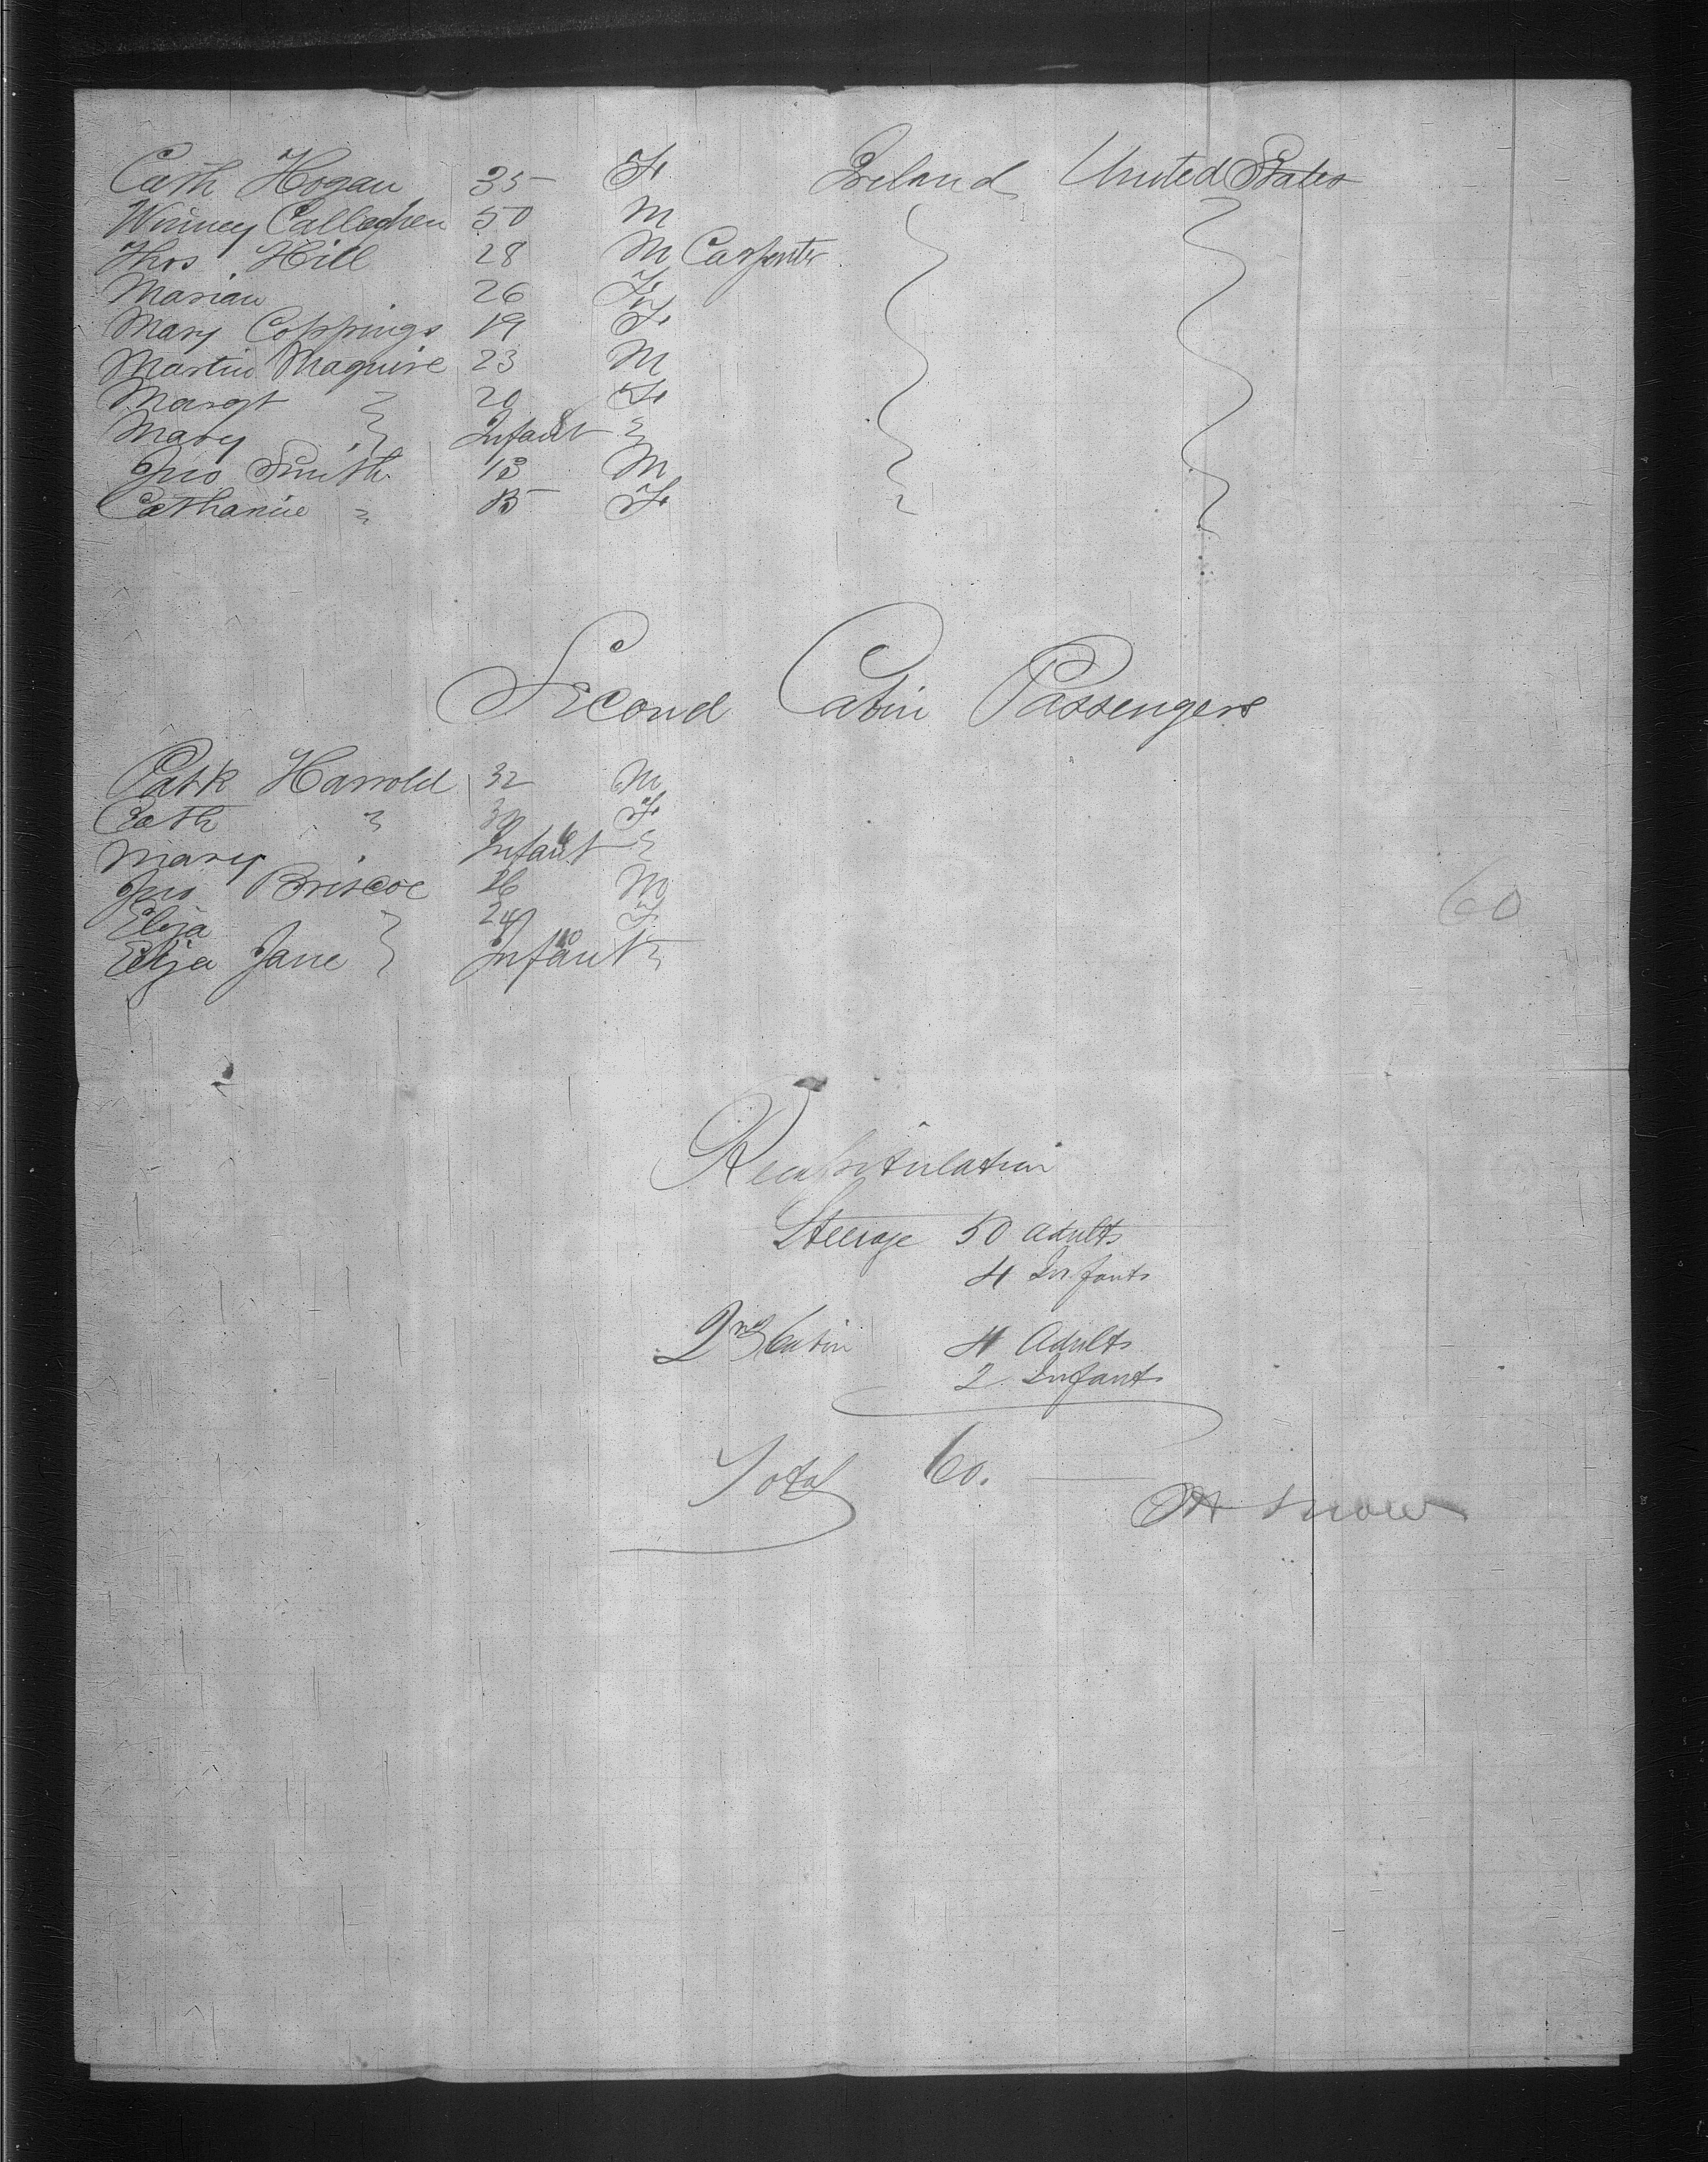 Cath Hogan 35 F Ireland United States
Winney Callaghen 50 M
Thos Hill 28 M Carpenter
Marian 26 F
Mary Coppings 19 F
Martin Maguire 23 M
Margt " 20 F
Mary " Infant "
Jno Smith 13 M
Catharine " 15 F
Second Cabin Passengers
Patk Harrold 32 M
Cath " 30 F
Mary " Infant "
Jno Briscoe 26 M
Eliza " 24 F
Eliza Jane " Infant "
60
Recapitulation
Steerage 50 adults
4 Infants
2nd Cabin 4 Adults
2 Infants
Total 60.
Snow